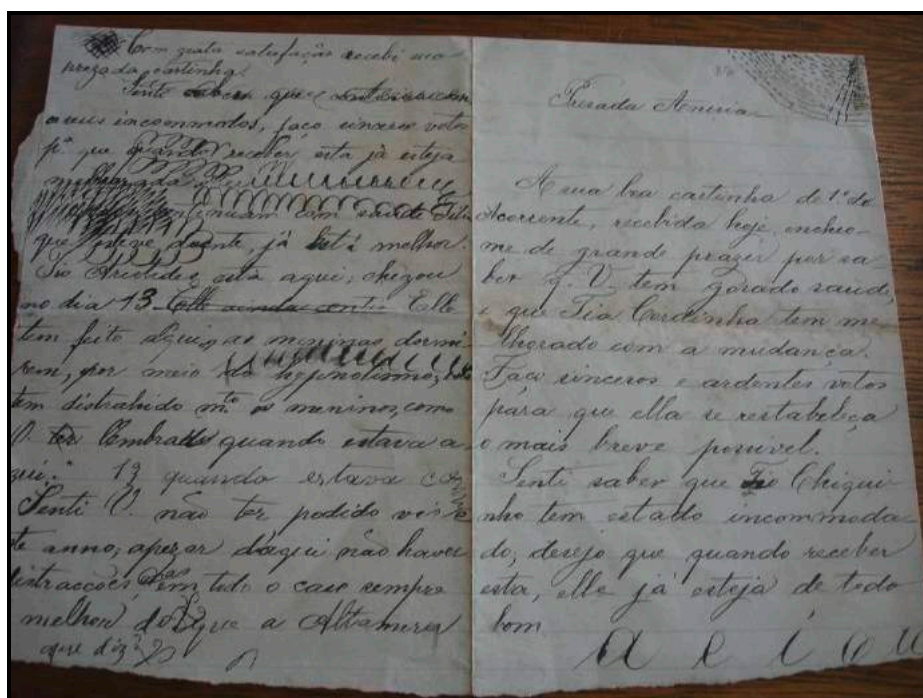 Com grata satisfação recebi sua
prezada cartinha.
Sinto saber que
seus incommodos, faço sinceros votos
pª que quando receber esta já esteja
melhorada.
continuam com saude
que esteve doente, já está melhor.
Tio Aristides está aqui, chegou
no dia 13. Elle ainda conti Elle
tem feito algumas meninas dormi
rem, por meio do hypnotismo,
tem distrahido mto os meninos, como
V. ter lembrado quando estava a
qui. 13 quando estava
Senti V. não ter podido vir es
te anno, apezar daqui não haver
distracções, em todo o caso sempre
melhor do que a Altamira
que diz
Presada Aneria
A sua boa cartinha de 1º do
corrente, recebida hoje, encheo-
me de grande prazer por sa-
ber q. V. tem gosado saude,
e que Tia Cordinha tem me
lhorado com a mudança.
Faço sinceros e ardentes votos
para que ella se restabeleça
o mais breve possivel.
Senti saber que Tio Chiqui
nho tem estado incommoda
do, desejo que quando receber
esta, elle já esteja de todo
bom
a e i o u